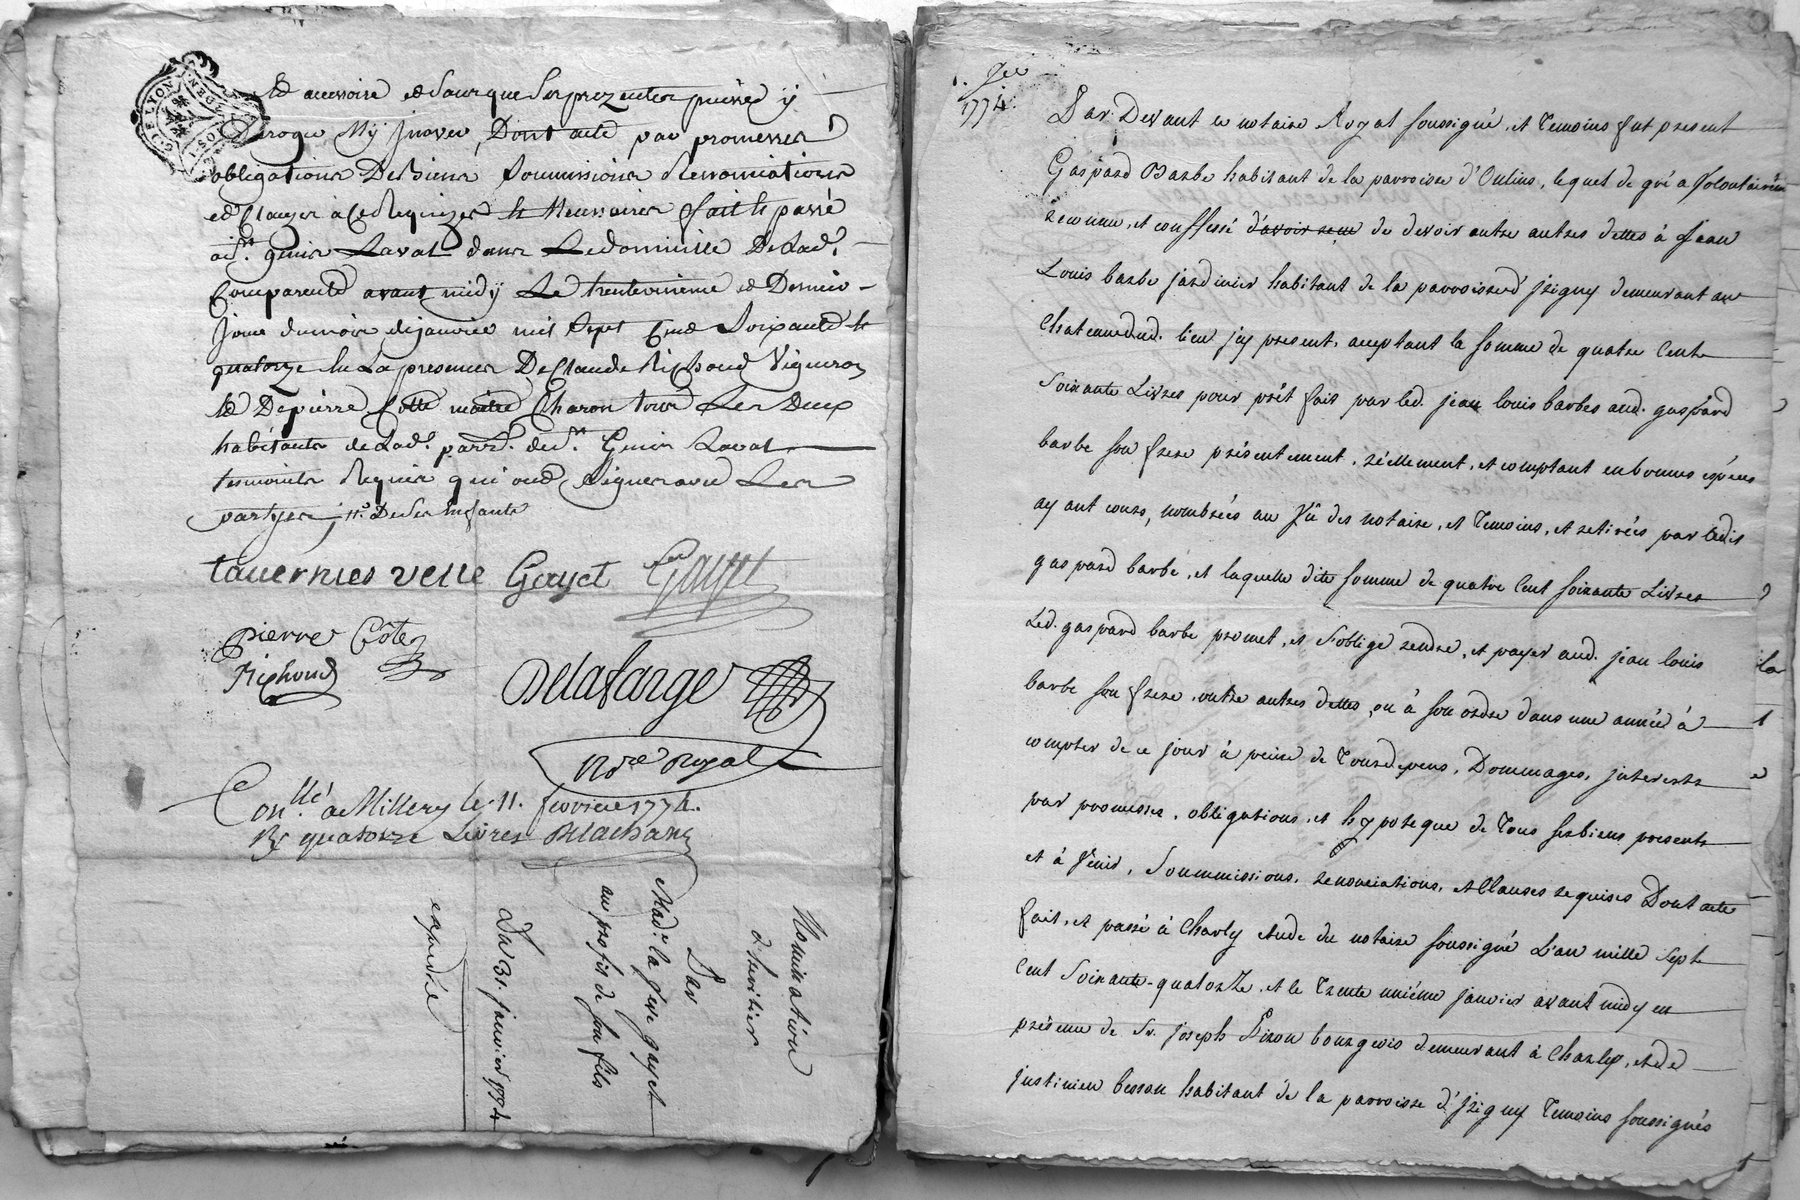 GDE LYON
et accessoire et sans que les prezentes puisse y
deroge Ny jnover Dont acte par promesses
obligations De biens Soumissions Renonciations
et Clauzes à Ce Requizes et Necessaires fait et passé
genis Laval dans Le domicille De Lad.
Comparente avant midÿ Le trente unieme et Dernier
jour du moir de janvier mil Sept Cent Soixante et
quatorze En La presence De Claude Richoud Vigneron
et De pierre Cotte maitre Charon tous Les Deux
habitants de Lad. parr. de Genis Laval
tesmoins Requis qui ont Signes avec Les
partyes De Ses Enfants
tavernies veue Gayet Gayet
pierre Côte
Richoud
Delafarge
No.re Royal
Con.llé a Millery le 11. fevrier 1774.
Rç quatorze Livres Delachan
Nomination
d'heritier
Par
Mad.e la veve gayet
au profit de son fils
Du 31. janvier 1774
expediée
1. Jer
1774
Par Devant le notaire Royal soussigné, et Temoins fut present
Gaspard Barbe habitant de la parroisse d'Oulins, lequel de gré a Volontairem
reconnu, et conffessé d'avoir reçu de devoir outre autres dettes à Jean
Louis barbe jardinier habitant de la parroisse d'jrigny demeurant au
Chateau dud. lieu jcy present, acceptant la somme de quatre Cents
Soixante Livres pour prêt fait par led. jean louis barbes aud. gaspard
barbe son frere présentement, réellement, et comptant en bonnes espéces
ayant cours, nombrées au Vû des notaire, et Temoins, et retirées par ledit
gaspard barbe, et laquelle dite somme de quatre Cent soixante Livres
Led. gaspard barbe promet, et s'oblige rendre, et payer aud. jean louis
barbe son frere, outre autres dettes, ou à son ordre dans une année à
compter de ce jour à peine de Tous depens, Dommages, jnterests
par promesses, obligations, et hypoteque de Tous ses biens presents
et à Venir, Soummissions, renonciations, et Clauses requises Dont acte
fait, et passé à Charly etude du notaire soussigné L'an mille Sept
Cent Soixante-quatorze, et le Trente uniéme janvier avant midy en
présence de Sr. joseph Pizon bourgeois demeurant à Charly, et de
justinien besson habitant de la parroisse d'jrigny Temoins soussignés